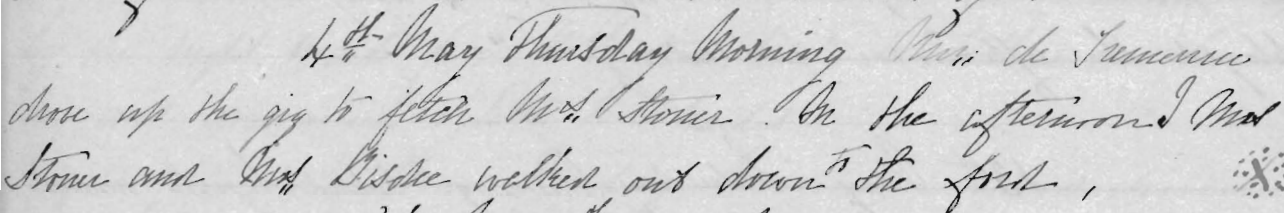 4th May Thursday Morning Mrs. de
drove up the gig to fetch Mrs. Stoner. In the afternoon I Mrs
Stoner and Mrs. Bisdee walked out down to the ford,